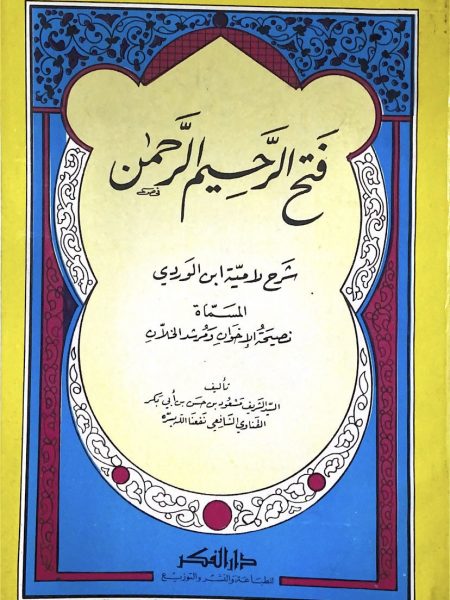 فَتح الرَّحِيم الرَّحمٰن
شرح لامية ابن الوردي
المسمّاة
نصيحة الإخوان ومرشد الخلان
تأليف
السيد الشريف مسعود بن حسن بن أبي بكر
القناوي الشافعي نفعنا الله بسره
دار الفكر
للطباعة والنشر والتوزيع